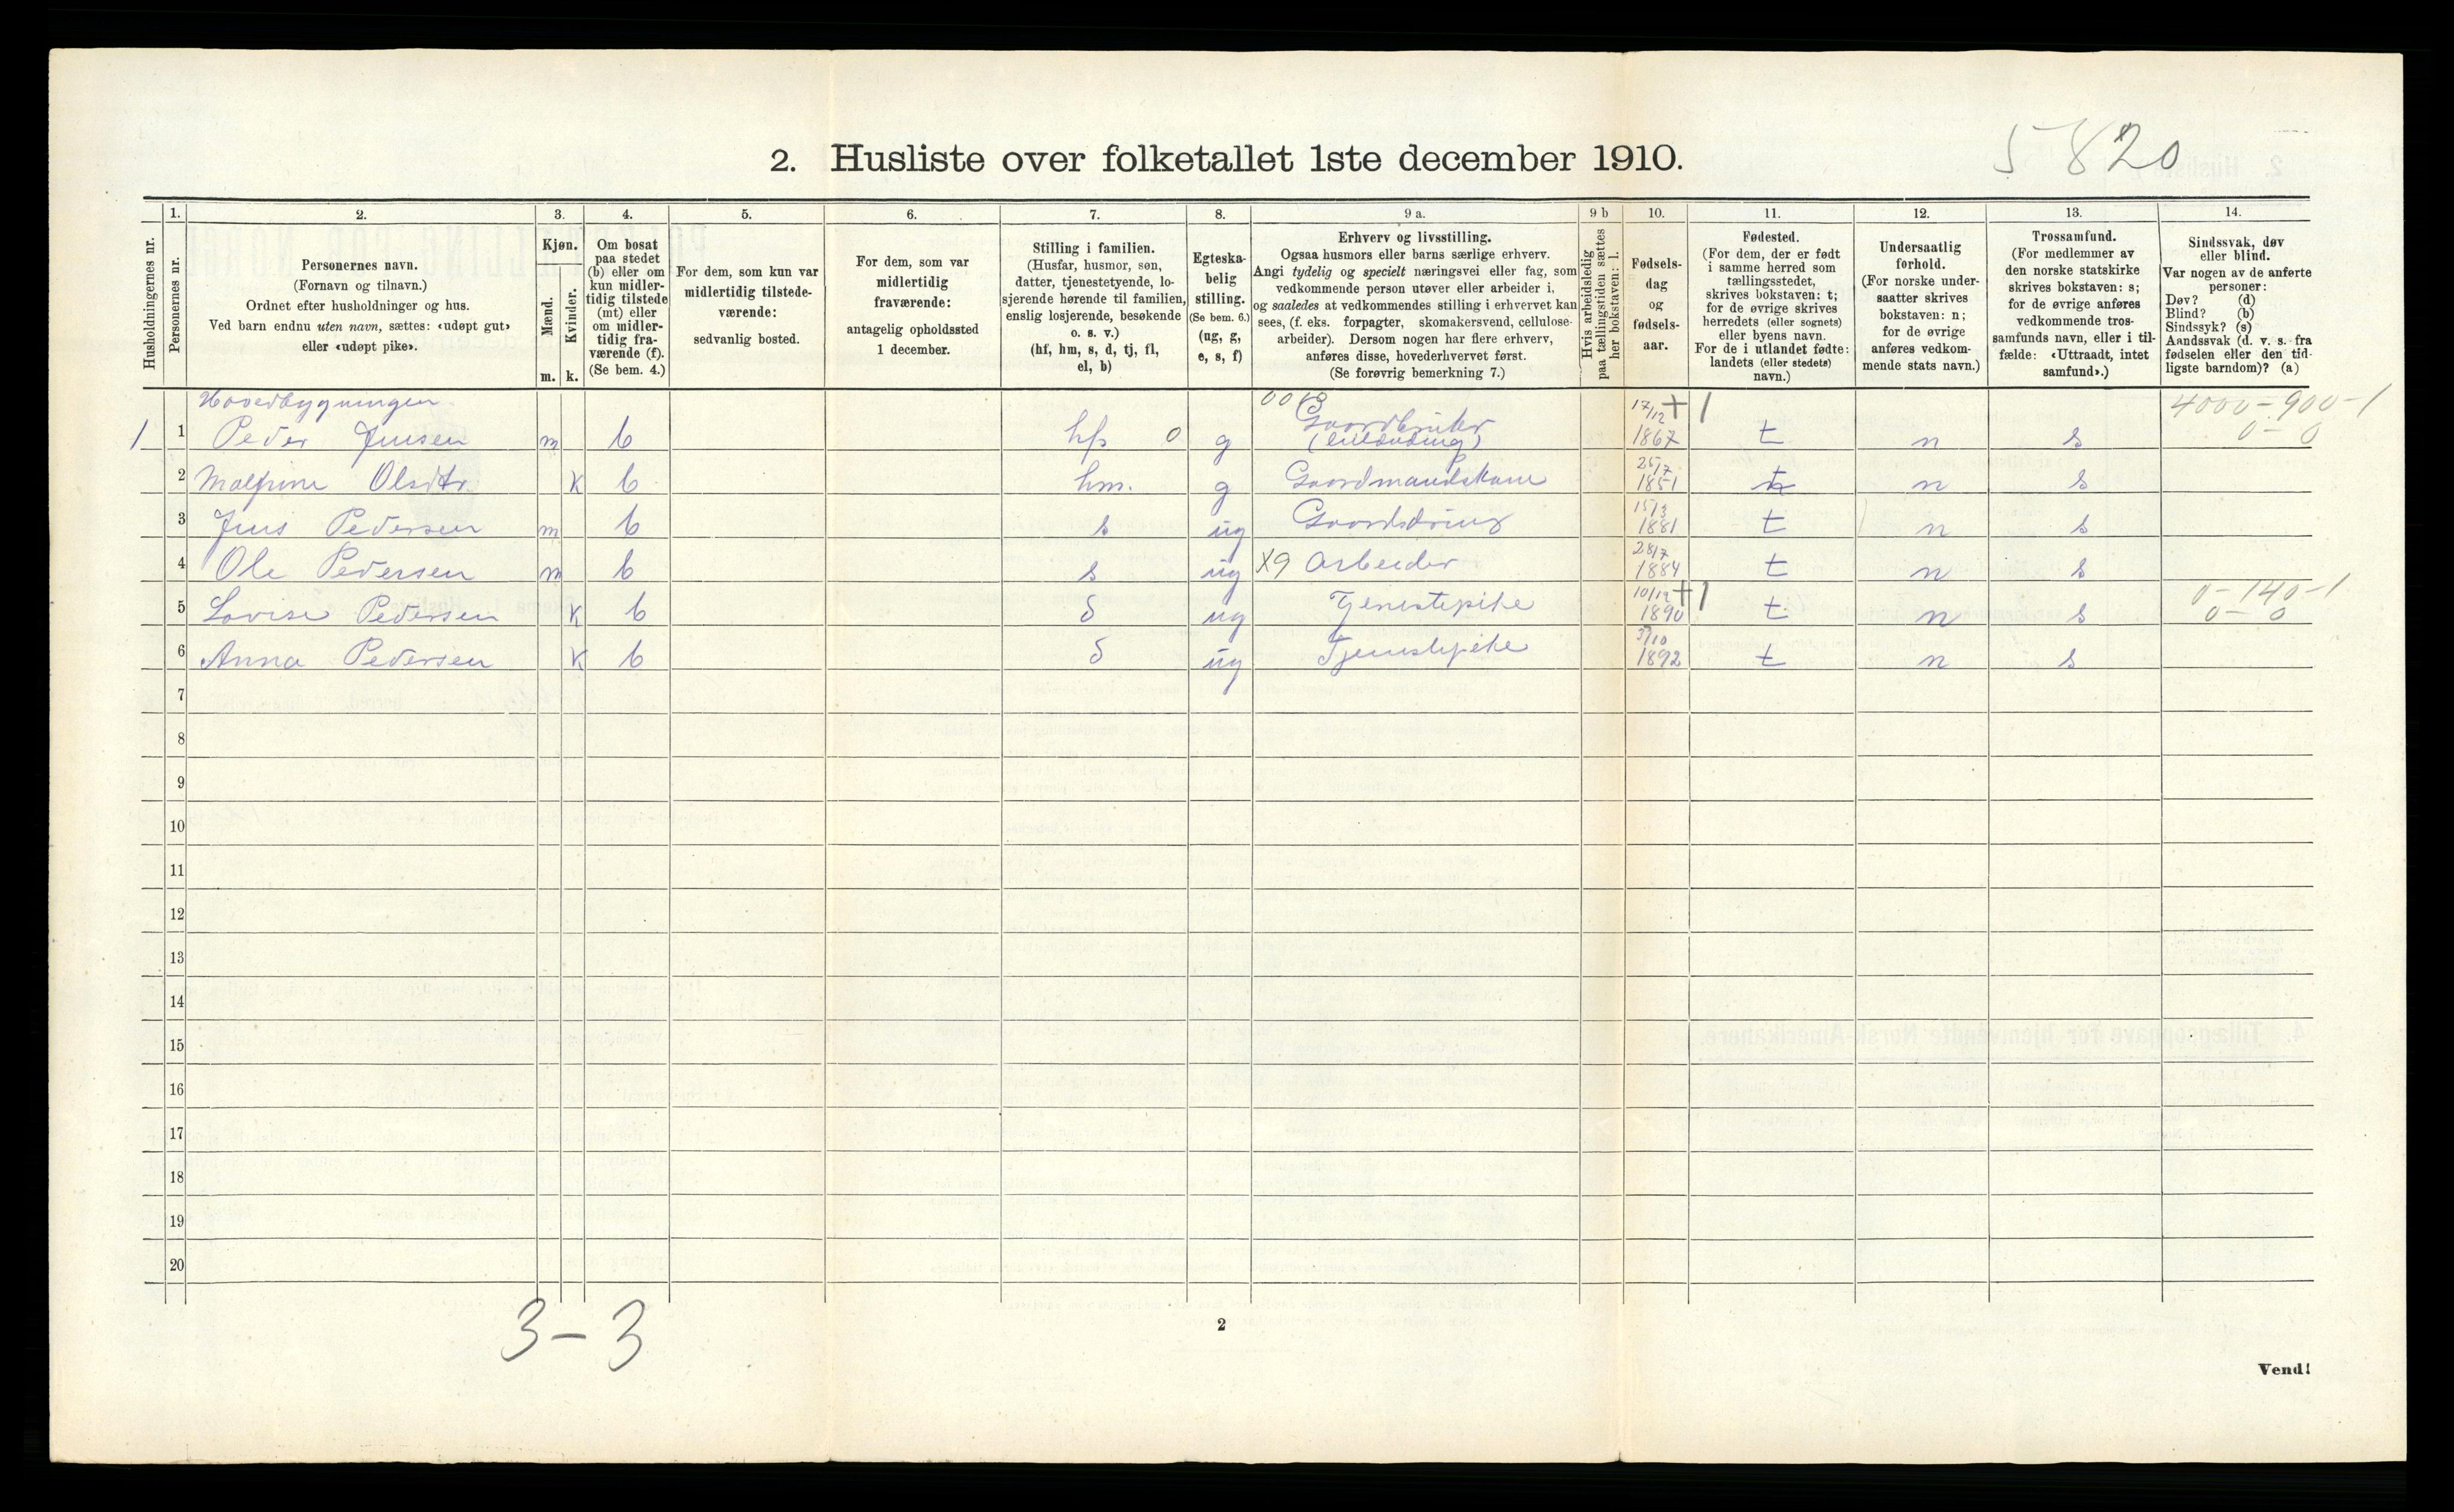 5 820
2. Husliste over folketallet 1ste december 1910.
Husholdningernes nr.
1. Personernes nr.
2. Personernes navn.
(Fornavn og tilnavn.)
Ordnet efter husholdninger og hus.
Ved barn endnu uten navn, sættes: «udøpt gut»
eller «udøpt pike».
3. Kjøn.
Mænd. m.
Kvinder. k.
4. Om bosat
paa stedet
(b) eller om
kun midler-
tidig tilstede
(mt) eller
om midler-
tidig fra-
værende (f).
(Se bem. 4.)
5. For dem, som kun var
midlertidig tilstede-
værende:
sedvanlig bosted.
6. For dem, som var
midlertidig
fraværende:
antagelig opholdssted
1 december.
7. Stilling i familien.
(Husfar, husmor, søn,
datter, tjenestetyende, lo-
sjerende hørende til familien,
enslig losjerende, besøkende
o. s. v.)
(hf, hm, s, d, tj, fl,
el, b)
8. Egteska-
belig
stilling.
(Se bem. 6.)
(ug, g,
e, s, f)
9 a. Erhverv og livsstilling.
Ogsaa husmors eller barns særlige erhverv.
Angi tydelig og specielt næringsvei eller fag, som
vedkommende person utøver eller arbeider i,
og saaledes at vedkommendes stilling i erhvervet kan
sees, (f. eks. forpagter, skomakersvend, cellulose-
arbeider). Dersom nogen har flere erhverv,
anføres disse, hovederhvervet først.
(Se forøvrig bemerkning 7.)
9 b Hvis arbeidsledig
paa tællingstiden sættes
her bokstaven: l.
10. Fødsels-
dag
og
fødsels-
aar.
11. Fødested.
(For dem, der er født
i samme herred som
tællingsstedet,
skrives bokstaven: t;
for de øvrige skrives
herredets (eller sognets)
eller byens navn.
For de i utlandet fødte:
landets (eller stedets)
navn.)
12. Undersaatlig
forhold.
(For norske under-
saatter skrives
bokstaven: n;
for de øvrige
anføres vedkom-
mende stats navn.)
13. Trossamfund.
(For medlemmer av
den norske statskirke
skrives bokstaven: s;
for de øvrige anføres
vedkommende tros-
samfunds navn, eller i til-
fælde: «Uttraadt, intet
samfund».)
14. Sindssvak, døv
eller blind.
Var nogen av de anførte
personer:
Døv? (d)
Blind? (b)
Sindssyk? (s)
Aandssvak (d. v. s. fra
fødselen eller den tid-
ligste barndom)? (a)
Hovedbygningen 17/12 + 1 4000-900-1
1 1 Peder Jensen m b hf 0 g Gaardbruker 1867 t n s 0-0
2 Olsdtr. k b hm. g Gaardmandskone 25/7 1851 t n s
3 Jens Pedersen m b s ug Gaardsdreng 15/3 1881 t n s
4 Ole Pedersen m b s ug X9 Arbeider 28/7 1884 t n s
5 Lovise Pedersen k b d ug Tjenestepike 10/12 + 1 1890 t n s 0-140-1 0-0
6 Anna Pedersen k b d ug Tjenestepike 1892 t n s
7
8
9
10
11
12
13
14
15
16
17
18
19
20
3-3
2
Vend!